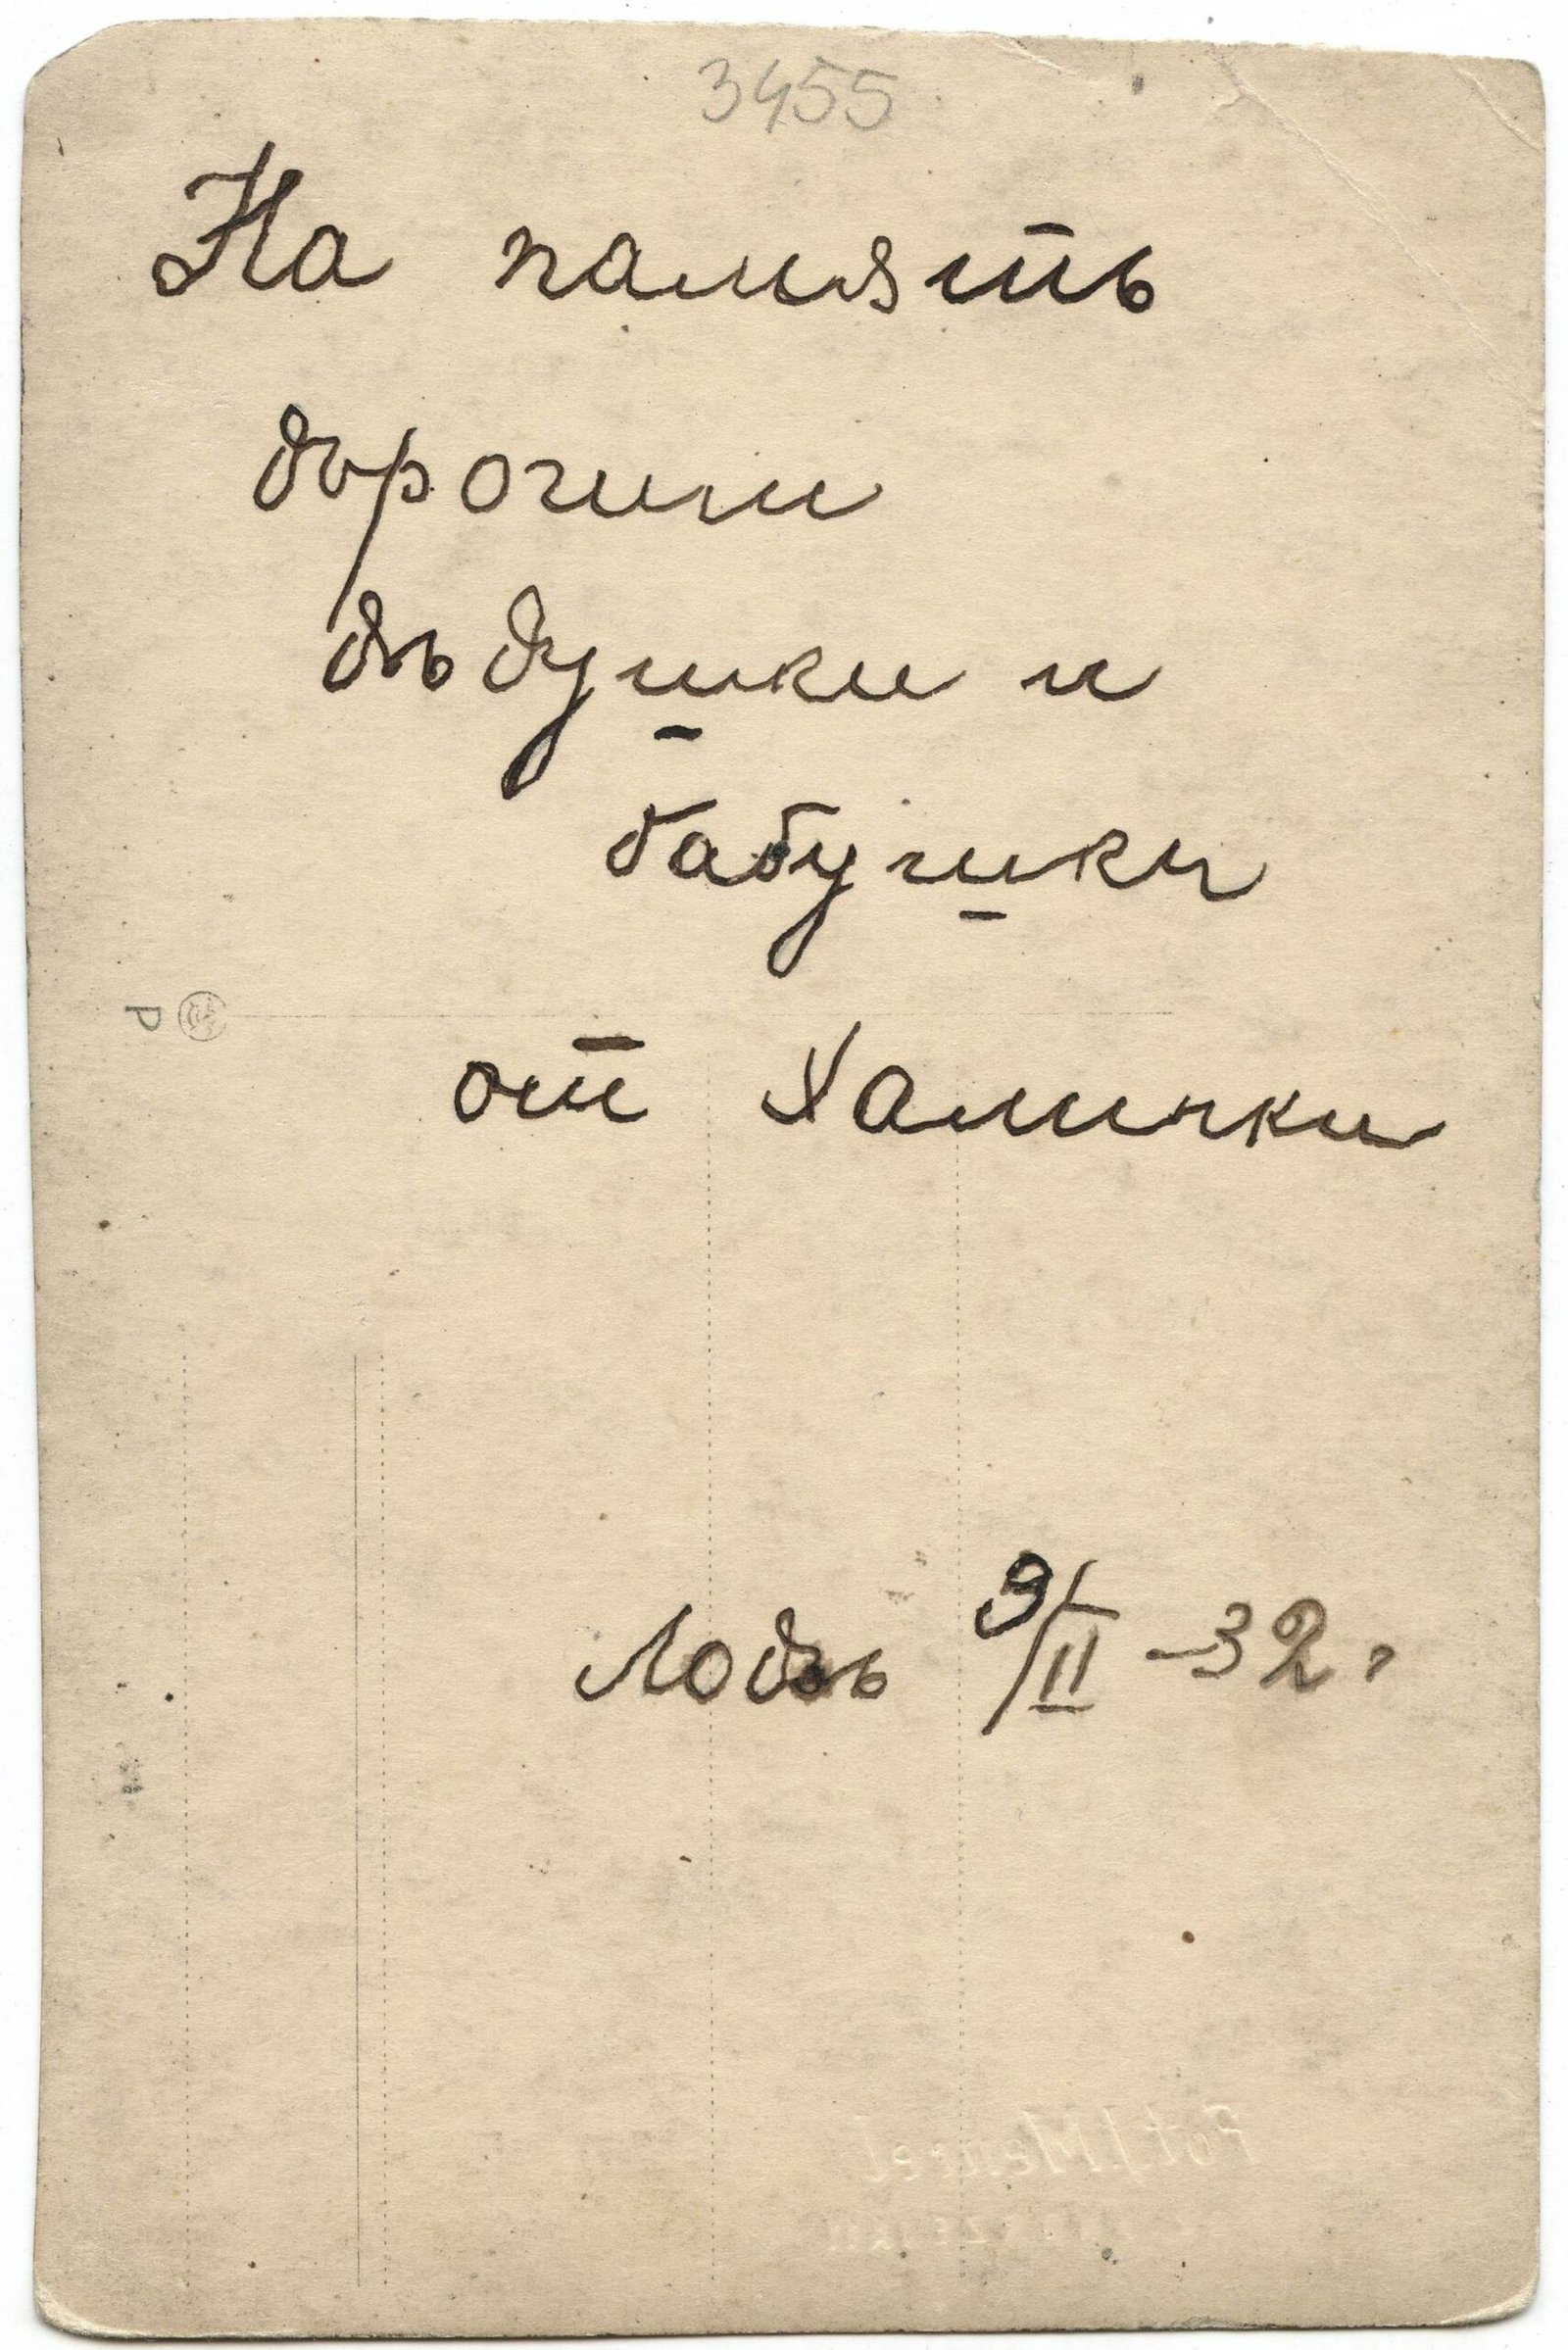 3455
На память
дорогим
дѣдушки и
бабушки
от Халинки
Лодзь 9/II -32.
P
Fot. J. Mencel